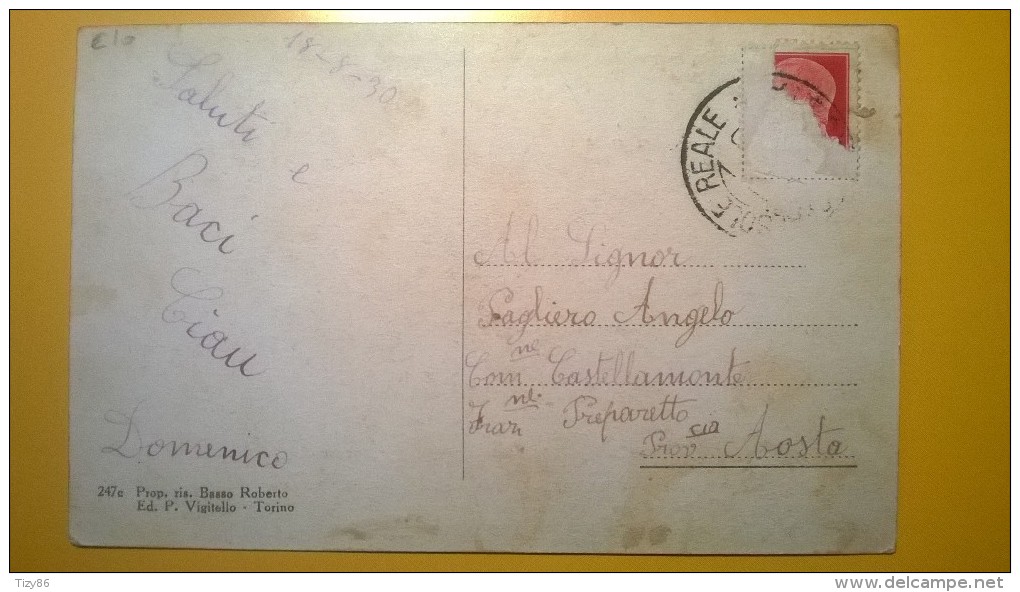 18-8-30
Saluti
e
Baci
Ciau
Domenico
247c Prop. ris. Basso Roberto
Ed. P. Vigitello - Torino
REALE
Al Signor
Pagliero Angelo
Com.ne Castellamonte
Fraz.ne Preparetto
Prov.cia Aosta
Tizy86
www.delcampe.net